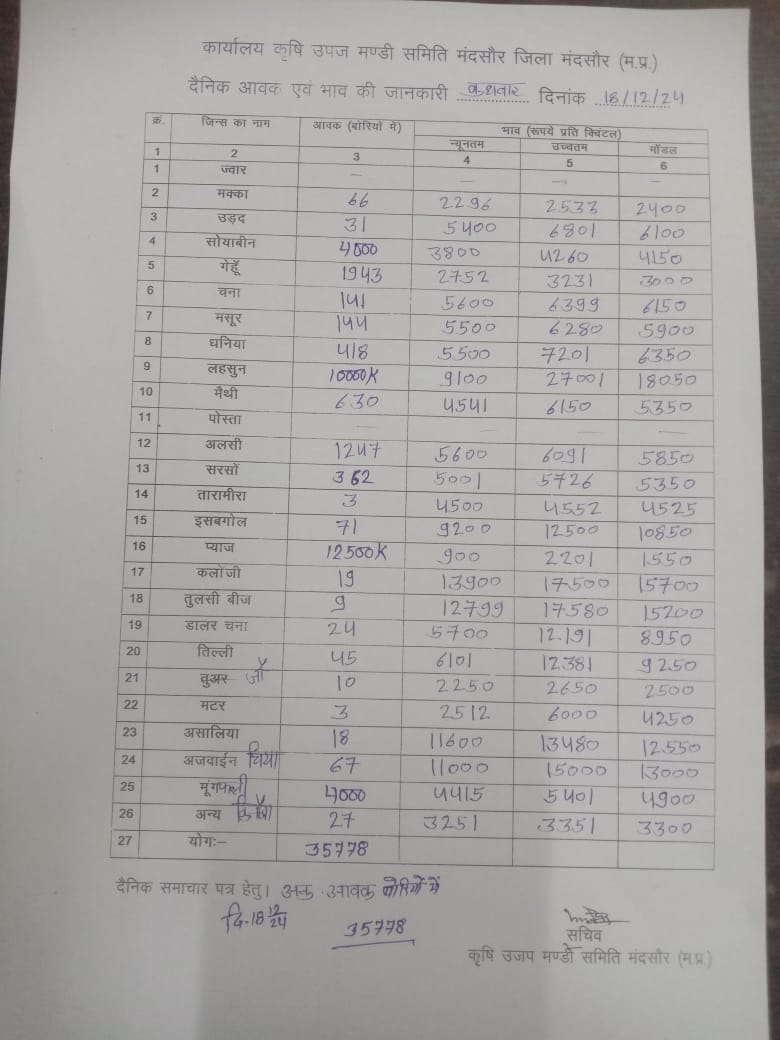 कार्यालय कृषि उपज मण्डी समिति मंदसौर जिला मंदसौर (म.प्र.)
दैनिक आवक एवं भाव की जानकारी बुधवार दिनांक 18/12/24
क्रं. जिन्स का नाम आवक (बोरियों में) भाव (रूपये प्रति क्विंटल)
न्यूनतम उच्चतम मॉडल
1 2 3 4 5 6
1 ज्वार — — — —
2 मक्का 66 2296 2533 2400
3 उड़द 31 5400 6801 6100
4 सोयाबीन 4000 3800 4260 4150
5 गेहूँ 1943 2752 3231 3000
6 चना 141 5600 6399 6150
7 मसूर 144 5500 6280 5900
8 धनिया 418 5500 7201 6350
9 लहसुन 10000K 9100 27001 18050
10 मैथी 630 4541 6150 5350
11 पोस्ता — — — —
12 अलसी 1247 5600 6091 5850
13 सरसों 362 5001 5726 5350
14 तारामीरा 3 4500 4552 4525
15 इसबगोल 71 9200 12500 10850
16 प्याज 12500K 900 2201 1550
17 कलोंजी 19 13900 17500 15700
18 तुलसी बीज 9 12799 17580 15200
19 डालर चना 24 5700 12191 8950
20 तिल्ली 45 6101 12381 9250
21 तुअर जौ 10 2250 2650 2500
22 मटर 3 2512 6000 4250
23 असालिया 18 11600 13480 12550
24 अजवाईन चिया 67 11000 15000 13000
25 मूंगफली 4000 4415 5401 4900
26 अन्य 27 3251 3351 3300
27 योगः— 35778
दैनिक समाचार पत्र हेतु। आवक बोरियों में
दि. 18 12/24 35778
सचिव
कृषि उजप मण्डी समिति मंदसौर (म.प्र.)